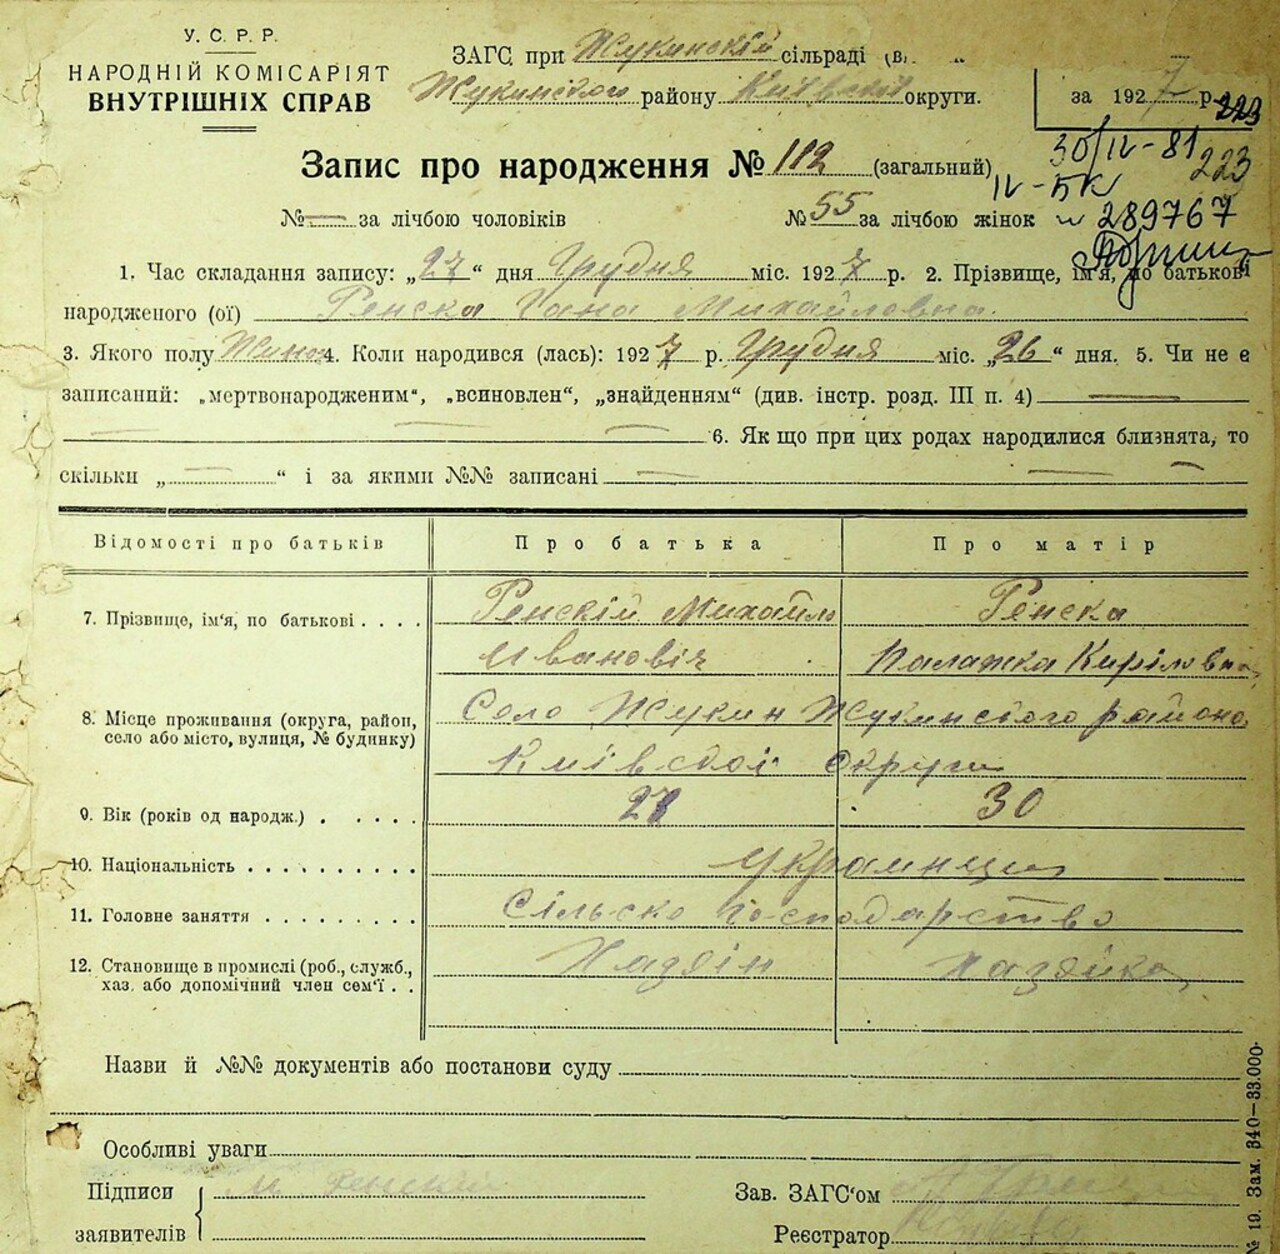 У. С. Р. Р.
НАРОДНІЙ КОМІСАРІЯТ
ВНУТРІШНІХ СПРАВ
ЗАГС при Жукинскій сільраді (в.
Жукинського району Київської округи.
за 1927 р.
223
30/IV-81
223
IV-БК
№ 289767
Запис про народження № 112 (загальний)
№ — за лічбою чоловіків № 55 за лічбою жінок
1. Час складання запису: „27“ дня Грудня міс. 1927 р. 2. Прізвище, ім'я, по батькові
народженого (ої) Ренска Гана Михайловна.
3. Якого полу Жино 4. Коли народився (лась): 1927 р. Грудня міс. „26“ дня. 5. Чи не є
записаний: „мертвонародженим“, „всиновлен“, „знайденням“ (див. інстр. розд. III п. 4) —
— 6. Як що при цих родах народилися близнята, то
скільки „—“ і за якими №№ записані —
Відомості про батьків Про батька Про матір
7. Прізвище, ім'я, по батькові . . . . Ренскій Михайло Ренска
Ивановіч Палажка Кирілівна
8. Місце проживання (округа, район, Село Жукин Жукинского района
село або місто, вулиця, № будинку) Киівскоі округи
9. Вік (років од народж.) . . . . . 27 30
10. Національність . . . . . . . . . . Украинци
11. Головне заняття . . . . . . . . . Сільско господарство
12. Становище в промислі (роб., служб., Хазяін Хазяйка
хаз. або допомічний член сем'ї . .
Назви й №№ документів або постанови суду
Особливі уваги
Підписи М Ренский Зав. ЗАГС'ом
заявителів Реєстратор
№ 19. Зам. 340—33.000.